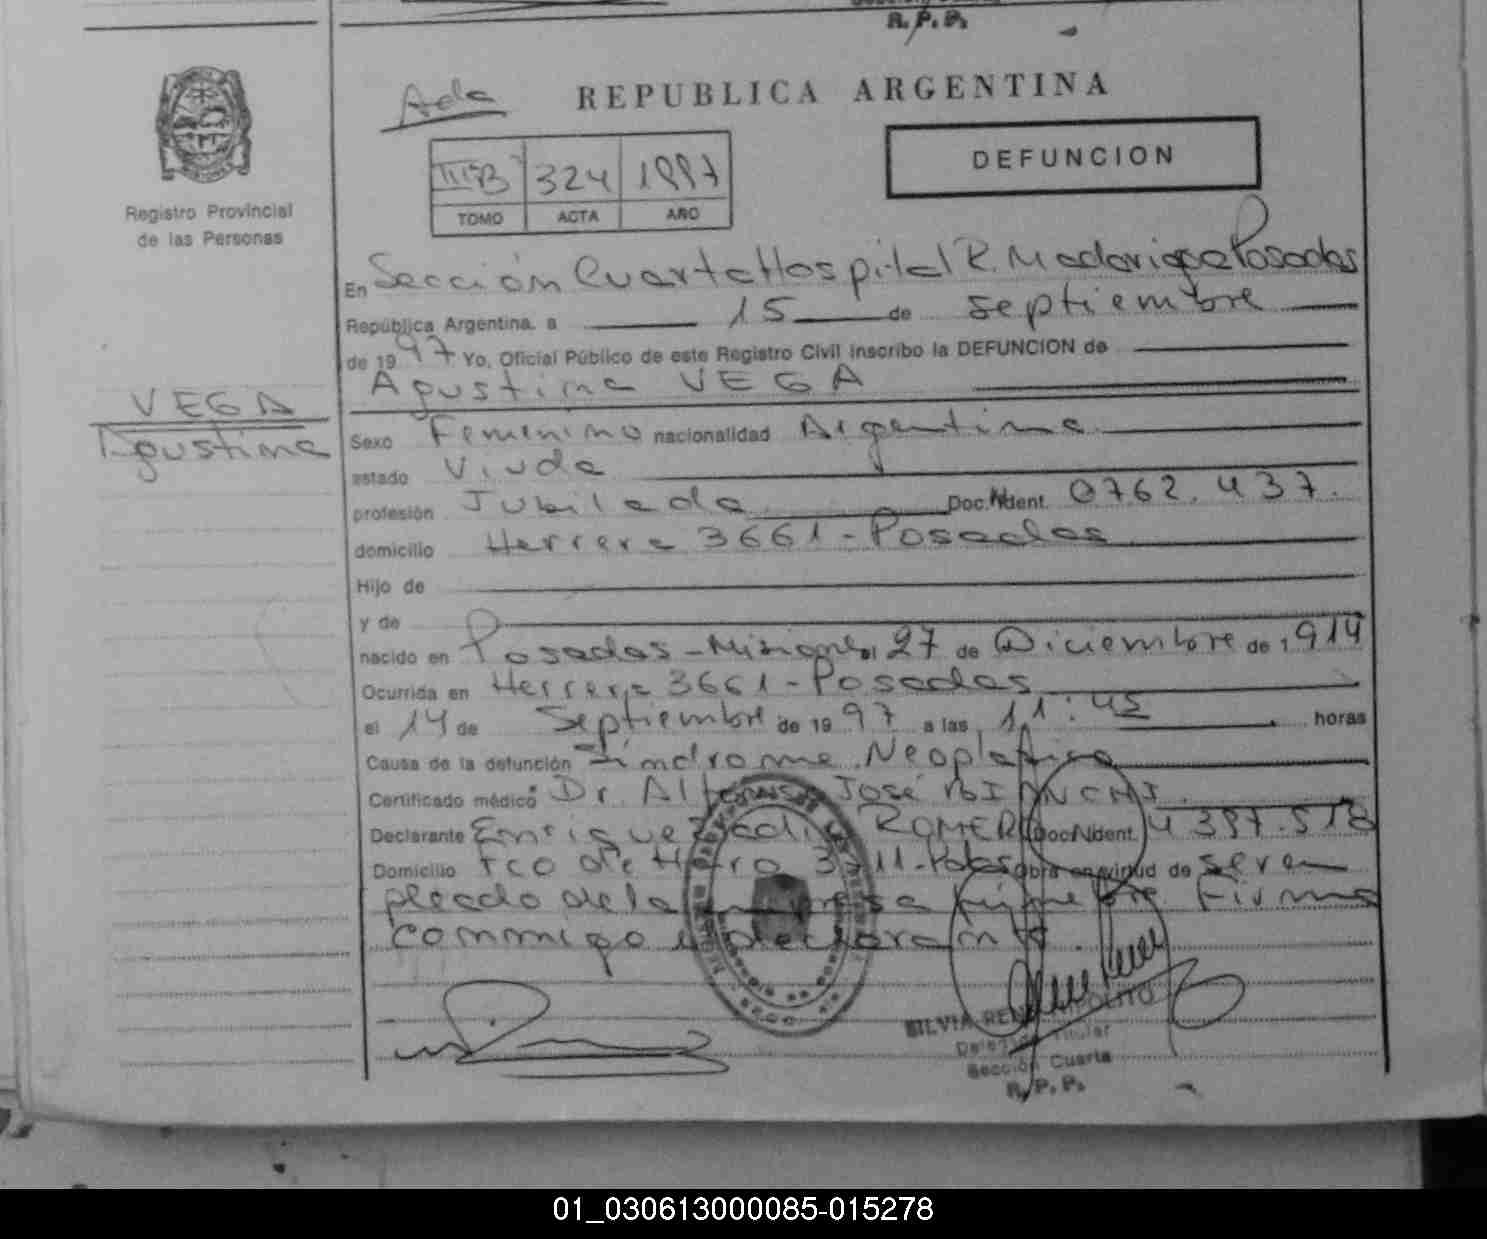 R. P. P.
Ada
REPUBLICA ARGENTINA
324 1997
TOMO ACTA AÑO
DEFUNCION
Registro Provincial
de las Personas
En Sección Cuarta Hospital R. Madariaga Posadas
República Argentina, a 15 de Septiembre
de 1997 Yo, Oficial Público de este Registro Civil inscribo la DEFUNCION de
Agustina VEGA
VEGA
Agustina
Sexo Femenino nacionalidad Argentina
estado Viuda
profesión Jubilada Doc. Ident. 0762.437.
domicilio Herrera 3661-Posadas
Hijo de
y de
nacido en Posadas-Misiones el 27 de Diciembre de 1914
Ocurrida en Herrera 3661-Posadas
el 14 de Septiembre de 1997 a las 11:45 horas
Causa de la defunción Síndrome Neoplasico
Certificado médico Dr. Alfonso José BIANCHI.
Declarante Enrique ROMERO Doc. Ident. 4.397.518
Domicilio Fco de Haro 3711-Pdas obra en virtud de ser em
pleado de la empresa fúnebre. Firma
conmigo el declarante.
SILVIA
Delegada Titular
Sección Cuarta
R. P. P.
01_030613000085-015278